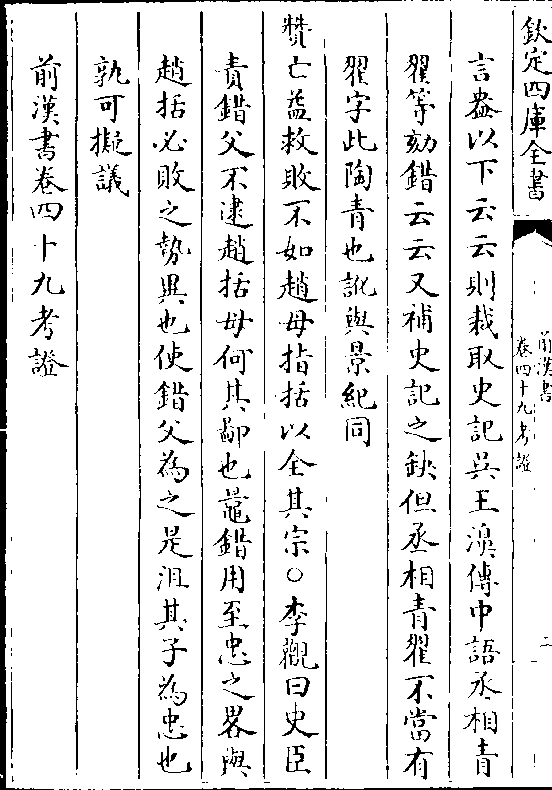 欽定四庫全書
前漢書
卷四十九考證
二
言盎以下云云則裁取史記吳王濞傳中語丞相青
翟等劾錯云云又補史記之缺但丞相青翟不當有
翟字此陶青也訛與景紀同
贊亡益救敗不如趙母指括以全其宗○李觀曰史臣
責錯父不逮趙括母何其鄙也鼂錯用至忠之畧與
趙括必敗之勢異也使錯父為之是沮其子為忠也
孰可擬議
前漢書卷四十九考證